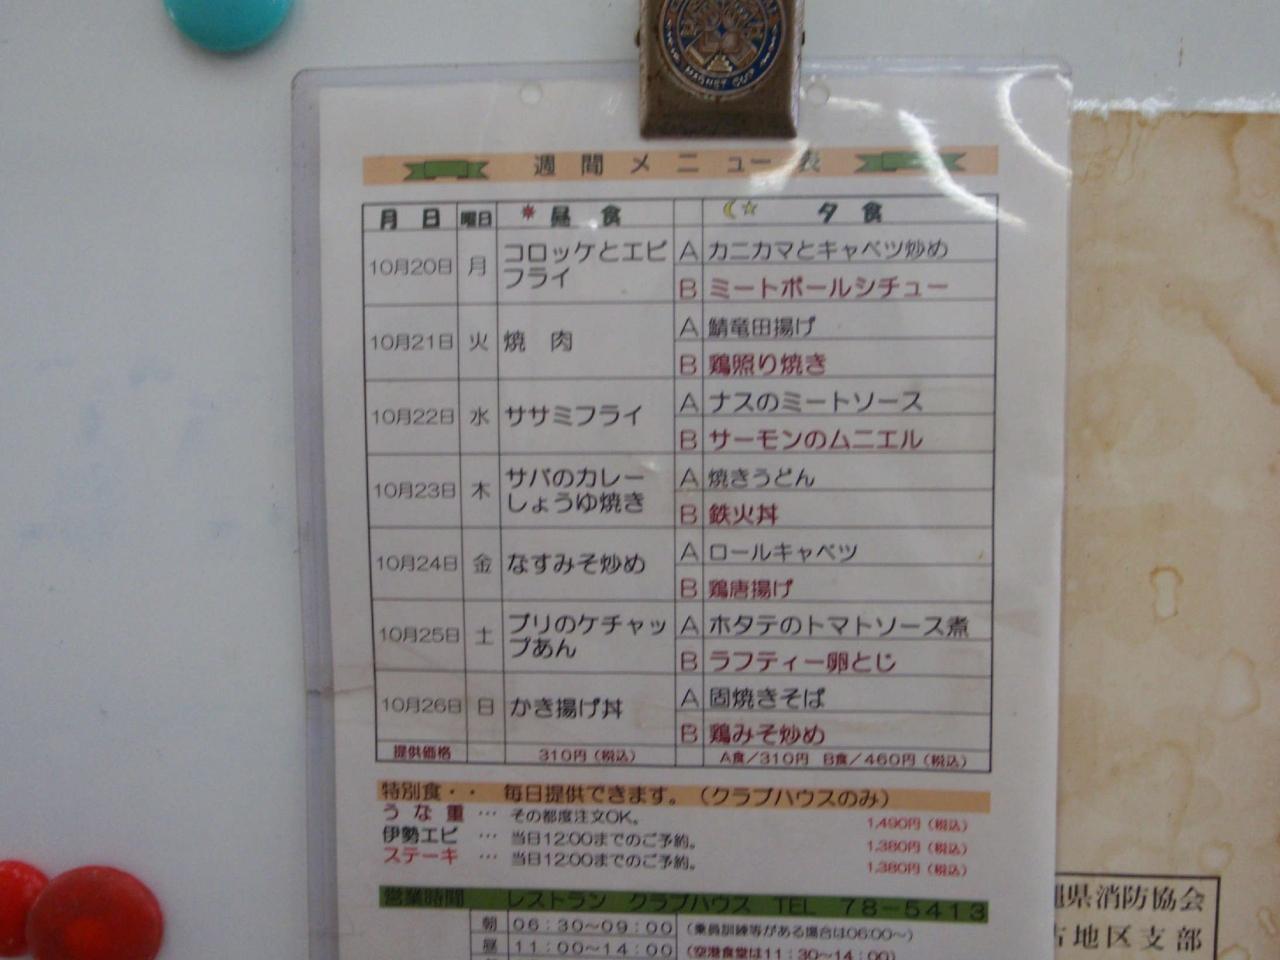 MAGNET CLIP
週間メニュー表
月日 曜日 昼食 夕食
10月20日 月 コロッケとエビフライ A カニカマとキャベツ炒め
B ミートボールシチュー
10月21日 火 焼肉 A 鯖竜田揚げ
B 鶏照り焼き
10月22日 水 ササミフライ A ナスのミートソース
B サーモンのムニエル
10月23日 木 サバのカレーしょうゆ焼き A 焼きうどん
B 鉄火丼
10月24日 金 なすみそ炒め A ロールキャベツ
B 鶏唐揚げ
10月25日 土 ブリのケチャップあん A ホタテのトマトソース煮
B ラフティー卵とじ
10月26日 日 かき揚げ丼 A 固焼きそば
B 鶏みそ炒め
提供価格 310円(税込) A食/310円 B食/460円(税込)
特別食・・ 毎日提供できます。(クラブハウスのみ)
うな重 … その都度注文OK。 1,490円(税込)
伊勢エビ … 当日12:00までのご予約。 1,380円(税込)
ステーキ … 当日12:00までのご予約。 1,380円(税込)
営業時間 レストラン クラブハウス TEL 78-5413
朝 06:30~09:00 (乗員訓練等がある場合は06:00~)
昼 11:00~14:00 (空港食堂は11:30~14:00)
県消防協会
地区支部